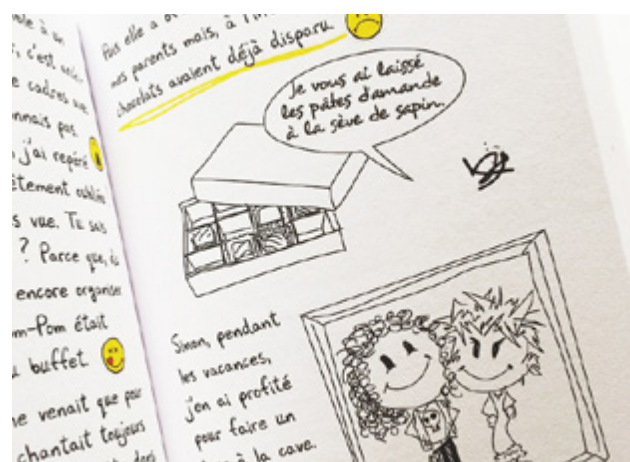 à un
c'est
cadres
pas.
j'ai repéré
vue. Tu sais
? Parce que,
encore organiser
m-Pom était
buffet
venait que pour
chantait toujours
elle a
mes parents mais, à
chocolats avaient déjà disparu.
Je vous ai laissé
les pâtes d'amande
à la sève de sapin.
Sinon, pendant
les vacances,
j'en ai profité
pour faire un
à la cave.